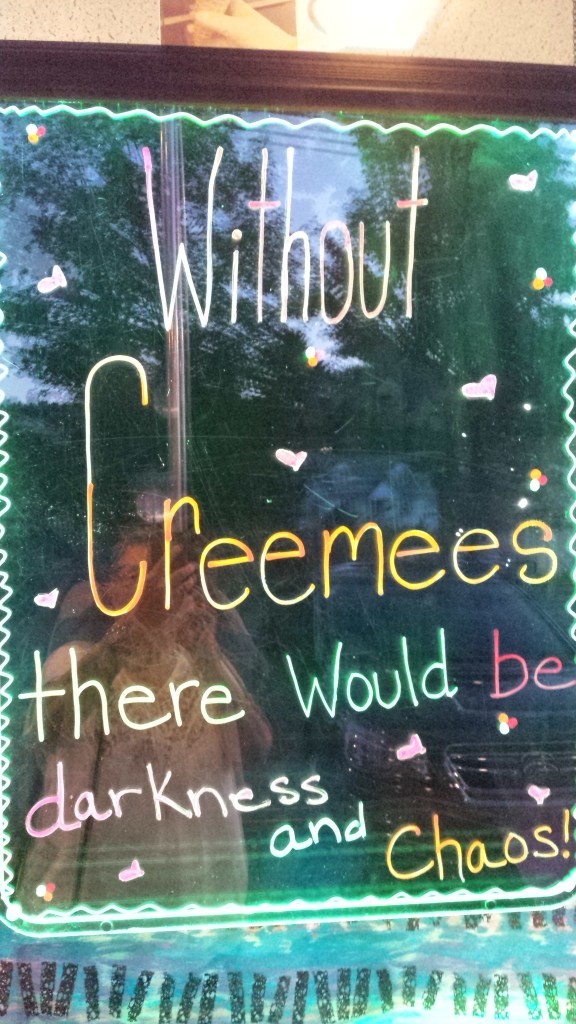 Without
Creemees
there Would be
darkness
and Chaos!